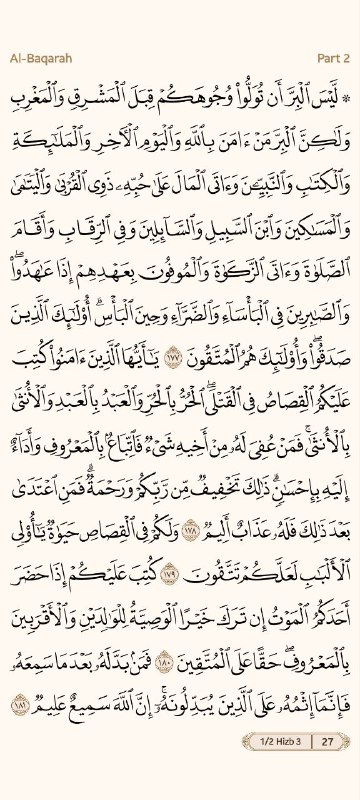 Al-Baqarah Part 2
۞ لَّيْسَ ٱلْبِرَّ أَن تُوَلُّوا۟ وُجُوهَكُمْ قِبَلَ ٱلْمَشْرِقِ وَٱلْمَغْرِبِ
وَلَـٰكِنَّ ٱلْبِرَّ مَنْ ءَامَنَ بِٱللَّهِ وَٱلْيَوْمِ ٱلْـَٔاخِرِ وَٱلْمَلَـٰٓئِكَةِ
وَٱلْكِتَـٰبِ وَٱلنَّبِيِّـۧنَ وَءَاتَى ٱلْمَالَ عَلَىٰ حُبِّهِۦ ذَوِى ٱلْقُرْبَىٰ وَٱلْيَتَـٰمَىٰ
وَٱلْمَسَـٰكِينَ وَٱبْنَ ٱلسَّبِيلِ وَٱلسَّآئِلِينَ وَفِى ٱلرِّقَابِ وَأَقَامَ
ٱلصَّلَوٰةَ وَءَاتَى ٱلزَّكَوٰةَ وَٱلْمُوفُونَ بِعَهْدِهِمْ إِذَا عَـٰهَدُوا۟ ۖ
وَٱلصَّـٰبِرِينَ فِى ٱلْبَأْسَآءِ وَٱلضَّرَّآءِ وَحِينَ ٱلْبَأْسِ ۗ أُو۟لَـٰٓئِكَ ٱلَّذِينَ
صَدَقُوا۟ ۖ وَأُو۟لَـٰٓئِكَ هُمُ ٱلْمُتَّقُونَ ١٧٧ يَـٰٓأَيُّهَا ٱلَّذِينَ ءَامَنُوا۟ كُتِبَ
عَلَيْكُمُ ٱلْقِصَاصُ فِى ٱلْقَتْلَى ۖ ٱلْحُرُّ بِٱلْحُرِّ وَٱلْعَبْدُ بِٱلْعَبْدِ وَٱلْأُنثَىٰ
بِٱلْأُنثَىٰ ۚ فَمَنْ عُفِىَ لَهُۥ مِنْ أَخِيهِ شَىْءٌ فَٱتِّبَاعٌۢ بِٱلْمَعْرُوفِ وَأَدَآءٌ
إِلَيْهِ بِإِحْسَـٰنٍ ۗ ذَٰلِكَ تَخْفِيفٌ مِّن رَّبِّكُمْ وَرَحْمَةٌ ۗ فَمَنِ ٱعْتَدَىٰ
بَعْدَ ذَٰلِكَ فَلَهُۥ عَذَابٌ أَلِيمٌ ١٧٨ وَلَكُمْ فِى ٱلْقِصَاصِ حَيَوٰةٌ يَـٰٓأُو۟لِى
ٱلْأَلْبَـٰبِ لَعَلَّكُمْ تَتَّقُونَ ١٧٩ كُتِبَ عَلَيْكُمْ إِذَا حَضَرَ
أَحَدَكُمُ ٱلْمَوْتُ إِن تَرَكَ خَيْرًا ٱلْوَصِيَّةُ لِلْوَٰلِدَيْنِ وَٱلْأَقْرَبِينَ
بِٱلْمَعْرُوفِ ۖ حَقًّا عَلَى ٱلْمُتَّقِينَ ١٨٠ فَمَنۢ بَدَّلَهُۥ بَعْدَ مَا سَمِعَهُۥ
فَإِنَّمَآ إِثْمُهُۥ عَلَى ٱلَّذِينَ يُبَدِّلُونَهُۥٓ ۚ إِنَّ ٱللَّهَ سَمِيعٌ عَلِيمٌ ١٨١
1/2 Hizb 3 27